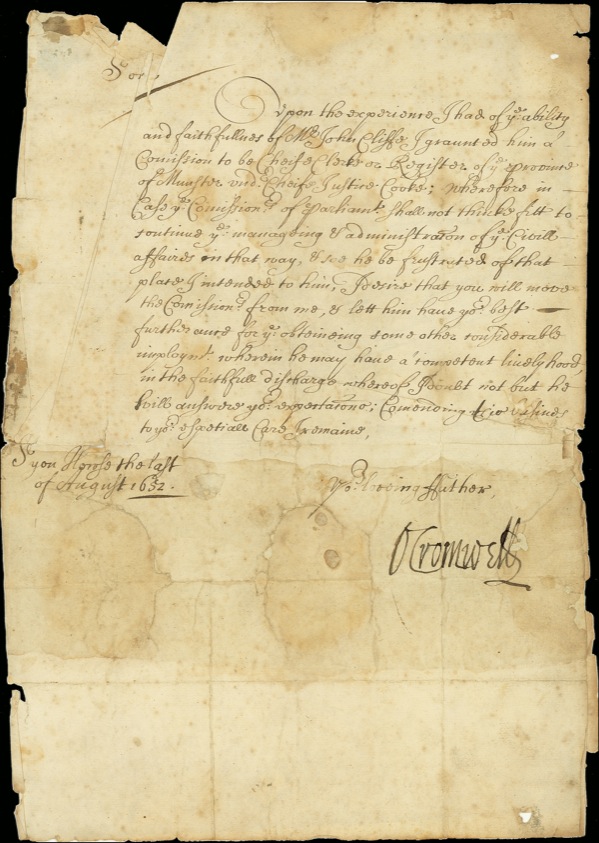 Sr
Vpon the experience I had of ye ability
and faithfullnes of Mr John Cliffe I graunted him a
Comission to be Cheife Clerke or Register of ye province
of Munster vndr Cheife Justice Cooke; wherefore in
Case ye Comissionrs of Parliamt shall not thinke fitt to
continue ye manageing & administracon of ye Civill
affaires in that way, & soe he be frustrated of that
place I intended to him, I desire that you will move
the Comissionrs from me, & lett him have yor best
furtherance for ye obteineing some other considerable
imploymt wherein he may have a competent livelyhood,
in the faithfull discharge whereof I doubt not but he
will answere yor expectacons; Comending this
to yor especiall Care I remaine,
the last
of August 1652.
Yor loveing ffather,
O Cromwell